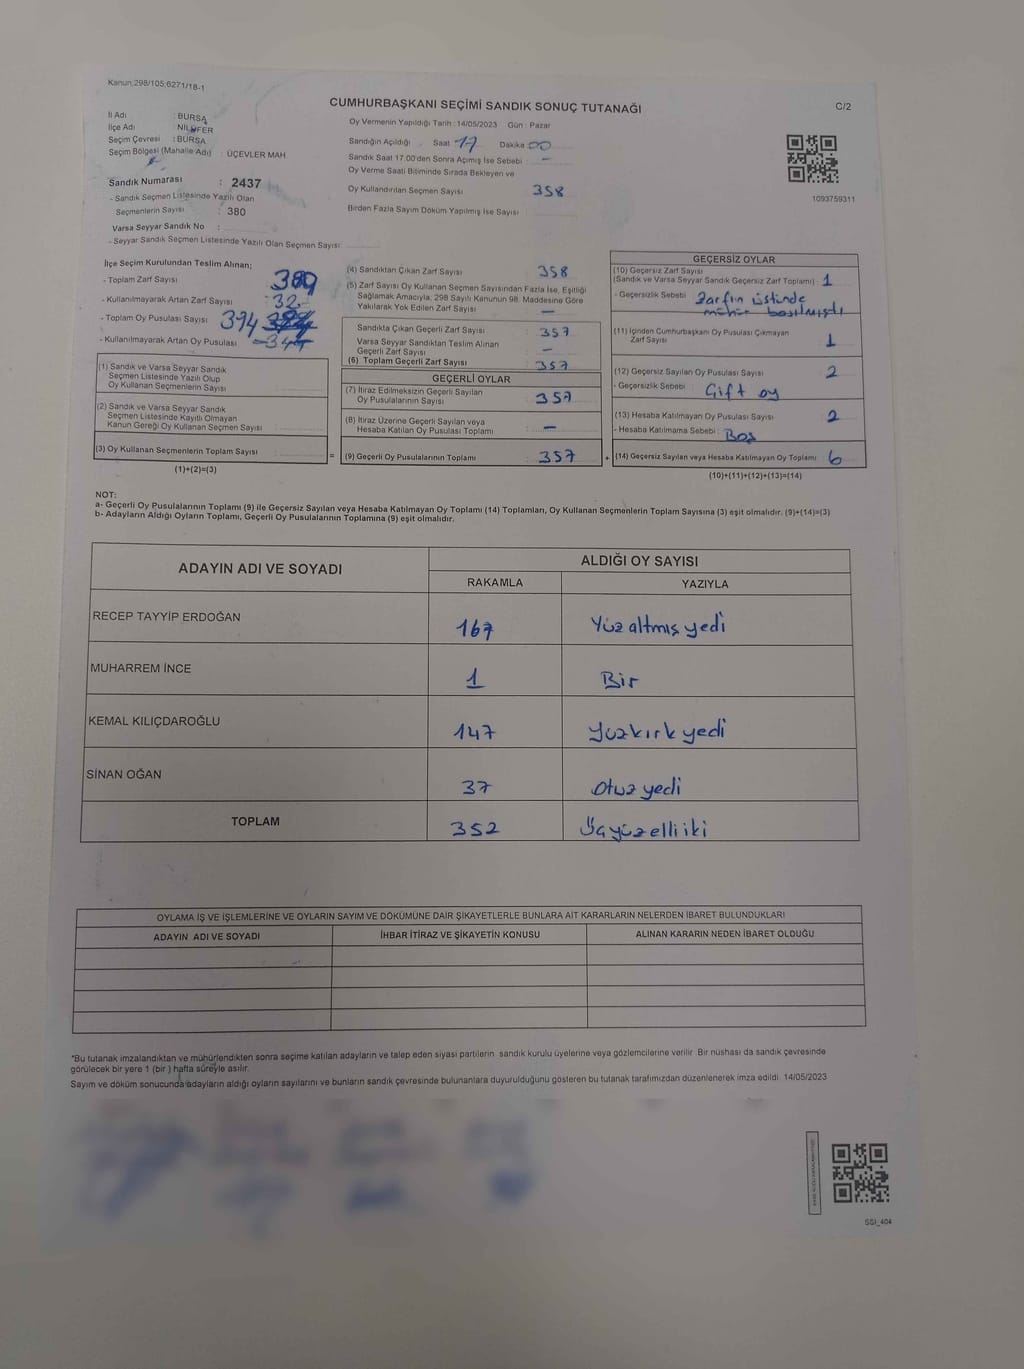 Kanun:298/105:6271/18-1
CUMHURBAŞKANI SEÇİMİ SANDIK SONUÇ TUTANAĞI
C/2
Oy Vermenin Yapıldığı Tarih : 14/05/2023 Gün : Pazar
İl Adı : BURSA
İlçe Adı : NİLÜFER
Seçim Çevresi : BURSA
Seçim Bölgesi (Mahalle Adı) : ÜÇEVLER MAH.
Sandık Numarası : 2437
- Sandık Seçmen Listesinde Yazılı Olan
Seçmenlerin Sayısı : 380
Varsa Seyyar Sandık No :
- Seyyar Sandık Seçmen Listesinde Yazılı Olan Seçmen Sayısı:
Sandığın Açıldığı : Saat 17 Dakika 00
Sandık Saat 17.00'den Sonra Açımış İse Sebebi : —
Oy Verme Saati Bitiminde Sırada Bekleyen ve
Oy Kullandırılan Seçmen Sayısı 358
Birden Fazla Sayım Döküm Yapılmış İse Sayısı
1093759311
İlçe Seçim Kurulundan Teslim Alınan;
- Toplam Zarf Sayısı
- Kullanılmayarak Artan Zarf Sayısı : 32
- Toplam Oy Pusulası Sayısı 394
- Kullanılmayarak Artan Oy Pusulası
(1) Sandık ve Varsa Seyyar Sandık
Seçmen Listesinde Yazılı Olup
Oy Kullanan Seçmenlerin Sayısı :
(2) Sandık ve Varsa Seyyar Sandık
Seçmen Listesinde Kayıtlı Olmayan
Kanun Gereği Oy Kullanan Seçmen Sayısı :
(3) Oy Kullanan Seçmenlerin Toplam Sayısı :
(1)+(2)=(3)
(4) Sandıktan Çıkan Zarf Sayısı : 358
(5) Zarf Sayısı Oy Kullanan Seçmen Sayısından Fazla İse, Eşitliği
Sağlamak Amacıyla, 298 Sayılı Kanunun 98. Maddesine Göre
Yakılarak Yok Edilen Zarf Sayısı : —
Sandıkta Çıkan Geçerli Zarf Sayısı : 357
Varsa Seyyar Sandıktan Teslim Alınan
Geçerli Zarf Sayısı : —
(6) Toplam Geçerli Zarf Sayısı : 357
GEÇERLİ OYLAR
(7) İtiraz Edilmeksizin Geçerli Sayılan
Oy Pusulalarının Sayısı : 357
(8) İtiraz Üzerine Geçerli Sayılan veya
Hesaba Katılan Oy Pusulası Toplamı : —
= (9) Geçerli Oy Pusulalarının Toplamı : 357
GEÇERSİZ OYLAR
(10) Geçersiz Zarf Sayısı
(Sandık ve Varsa Seyyar Sandık Geçersiz Zarf Toplamı) : 1
- Geçersizlik Sebebi : Zarfın üstünde
mühür basılmıştı
(11) İçinden Cumhurbaşkanı Oy Pusulası Çıkmayan
Zarf Sayısı : 1
(12) Geçersiz Sayılan Oy Pusulası Sayısı : 2
- Geçersizlik Sebebi : Çift oy
(13) Hesaba Katılmayan Oy Pusulası Sayısı : 2
- Hesaba Katılmama Sebebi : Boş
+ (14) Geçersiz Sayılan veya Hesaba Katılmayan Oy Toplamı : 6
(10)+(11)+(12)+(13)=(14)
NOT:
a- Geçerli Oy Pusulalarının Toplamı (9) ile Geçersiz Sayılan veya Hesaba Katılmayan Oy Toplamı (14) Toplamları, Oy Kullanan Seçmenlerin Toplam Sayısına (3) eşit olmalıdır. (9)+(14)=(3)
b- Adayların Aldığı Oyların Toplamı, Geçerli Oy Pusulalarının Toplamına (9) eşit olmalıdır.
ADAYIN ADI VE SOYADI
ALDIĞI OY SAYISI
RAKAMLA YAZIYLA
RECEP TAYYİP ERDOĞAN 167 Yüz altmış yedi
MUHARREM İNCE 1 Bir
KEMAL KILIÇDAROĞLU 147 Yüzkırk yedi
SİNAN OĞAN 37 Otuz yedi
TOPLAM 352 Üçyüz elli iki
OYLAMA İŞ VE İŞLEMLERİNE VE OYLARIN SAYIM VE DÖKÜMÜNE DAİR ŞİKAYETLERLE BUNLARA AİT KARARLARIN NELERDEN İBARET BULUNDUKLARI
ADAYIN ADI VE SOYADI İHBAR İTİRAZ VE ŞİKAYETİN KONUSU ALINAN KARARIN NEDEN İBARET OLDUĞU
*Bu tutanak imzalandıktan ve mühürlendikten sonra seçime katılan adayların ve talep eden siyasi partilerin sandık kurulu üyelerine veya gözlemcilerine verilir. Bir nüshası da sandık çevresinde
görülecek bir yere 1 (bir ) hafta süreyle asılır.
Sayım ve döküm sonucunda adayların aldığı oyların sayılarını ve bunların sandık çevresinde bulunanlara duyurulduğunu gösteren bu tutanak tarafımızdan düzenlenerek imza edildi. 14/05/2023
SSI_404